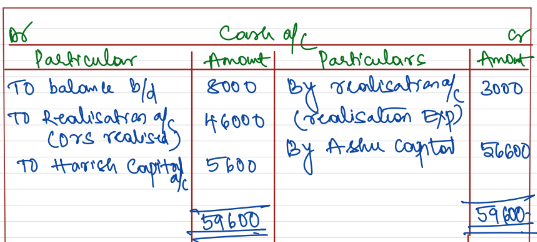 Dr Cash a/c Cr
Particular Amount Particulars Amount
TO balance b/d 8000 By realisation a/c 3000
TO Realisation a/c 46000 (realisation Exp)
(Drs realised) By Ashu capital 56600
TO Harish Capital a/c 5600
59600 59600